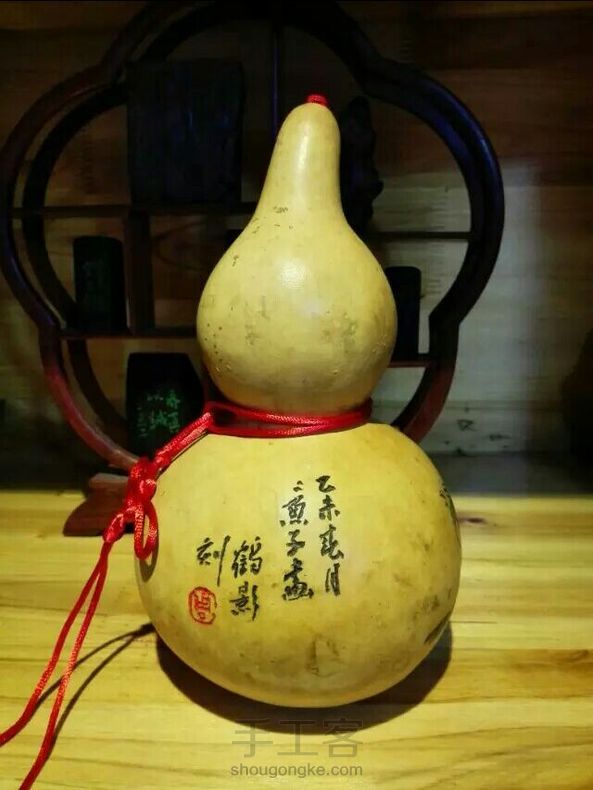 乙未春月
魚子畫
鶴影
刻
手工客
shougongke.com